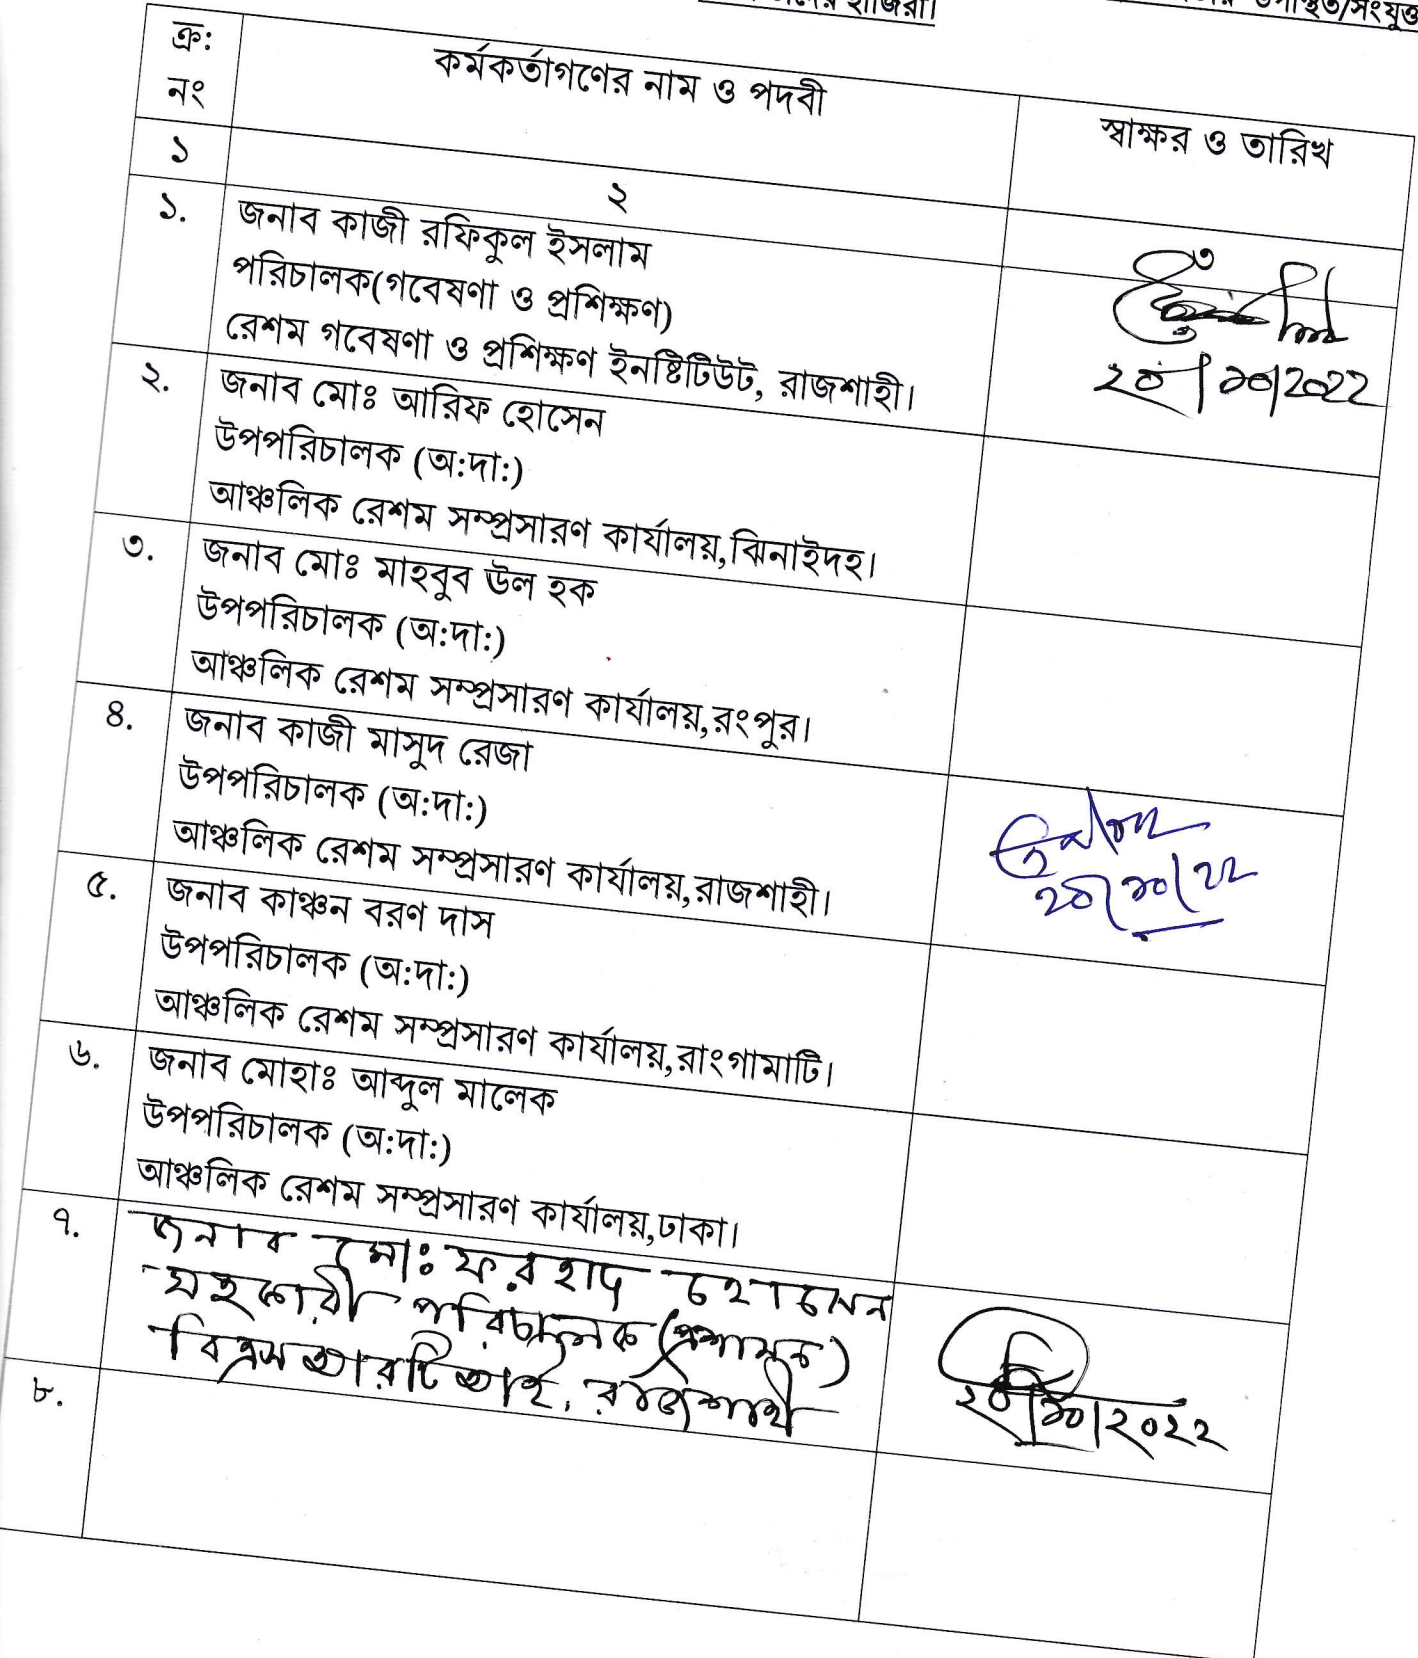 হাজিরা।
উপস্থিত/সংযুক্ত
ক্র:
নং
কর্মকর্তাগণের নাম ও পদবী
স্বাক্ষর ও তারিখ
১
২
১.
জনাব কাজী রফিকুল ইসলাম
পরিচালক(গবেষণা ও প্রশিক্ষণ)
রেশম গবেষণা ও প্রশিক্ষণ ইনষ্টিটিউট, রাজশাহী।
২০/১০/2022
২.
জনাব মোঃ আরিফ হোসেন
উপপরিচালক (অ:দা:)
আঞ্চলিক রেশম সম্প্রসারণ কার্যালয়,ঝিনাইদহ।
৩.
জনাব মোঃ মাহবুব উল হক
উপপরিচালক (অ:দা:)
আঞ্চলিক রেশম সম্প্রসারণ কার্যালয়,রংপুর।
৪.
জনাব কাজী মাসুদ রেজা
উপপরিচালক (অ:দা:)
আঞ্চলিক রেশম সম্প্রসারণ কার্যালয়,রাজশাহী।
২০/১০/২২
৫.
জনাব কাঞ্চন বরণ দাস
উপপরিচালক (অ:দা:)
আঞ্চলিক রেশম সম্প্রসারণ কার্যালয়,রাংগামাটি।
৬.
জনাব মোহাঃ আব্দুল মালেক
উপপরিচালক (অ:দা:)
আঞ্চলিক রেশম সম্প্রসারণ কার্যালয়,ঢাকা।
৭.
জনাব মোঃ ফরহাদ হোসেন
সহকারী পরিচালক (প্রশাসন)
বিএসআরটিআই, রাজশাহী
২০/১০/২০২২
৮.